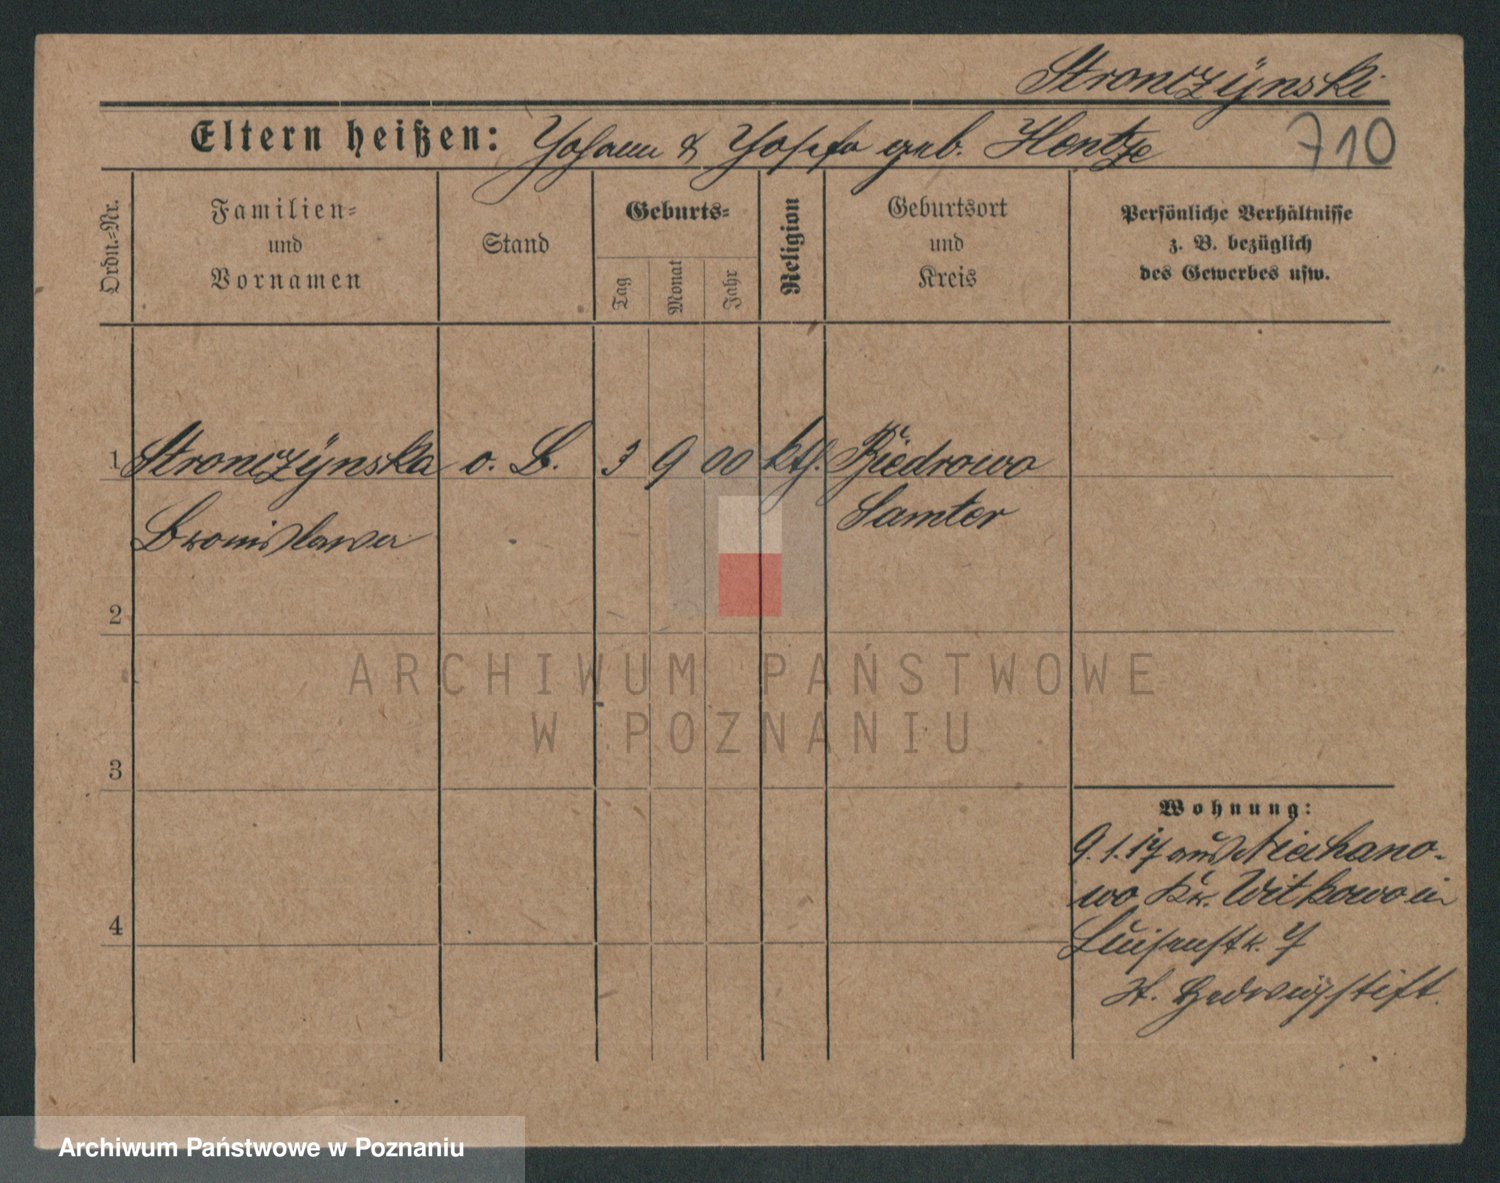 Stronczÿnski
Eltern heißen: Johann & Josefa geb. Hentze
710
Ordn.-Nr.
Familien-
und
Vornamen
Stand
Geburts-
Tag
Monat
Jahr
Religion
Geburtsort
und
Kreis
Persönliche Verhältnisse
z. B. bezüglich
des Gewerbes usw.
1 Stronczÿnska o. B. 3 9 00 kth. Biedrowo
Bronislawa Samter
2
3
4
Wohnung:
9.1.17 aus Niechano-
wo Kr. Witkowo in
Luisenstr. 7
St. Hedwigstift.
ARCHIWUM PAŃSTWOWE
W POZNANIU
Archiwum Państwowe w Poznaniu